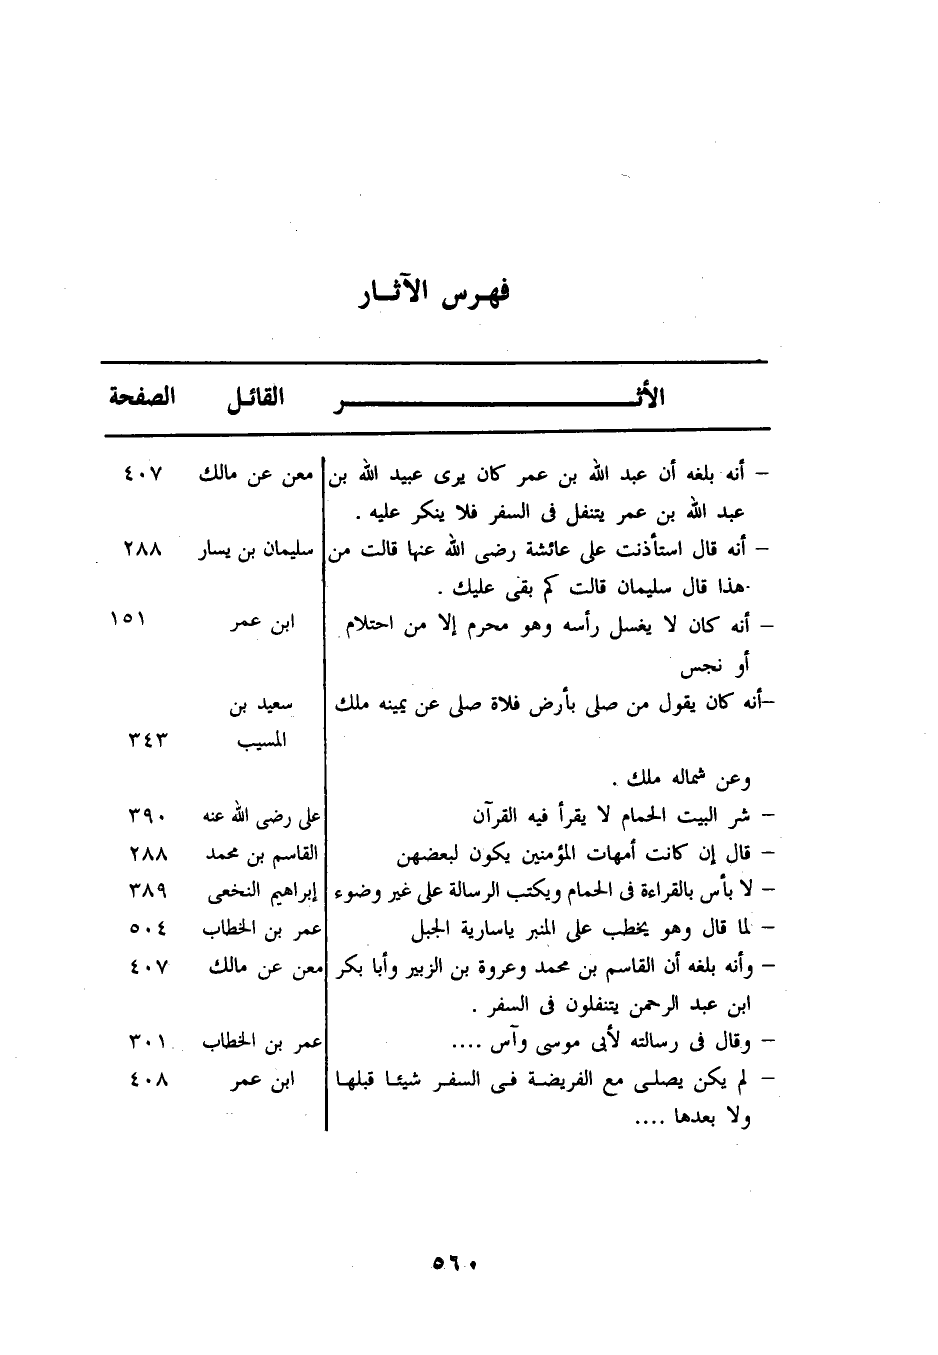 فهرس الآثار
الأثر القائل الصفحة
– أنه بلغه أن عبد الله بن عمر كان يرى عبيد الله بن معن عن مالك ٤٠٧
عبد الله بن عمر يتنفل فى السفر فلا ينكر عليه .
– أنه قال استأذنت على عائشة رضى الله عنها قالت من سليمان بن يسار ٢٨٨
هذا قال سليمان قالت كم بقى عليك .
– أنه كان لا يغسل رأسه وهو محرم إلا من احتلام ابن عمر ١٥١
أو نجس
–أنه كان يقول من صلى بأرض فلاة صلى عن يمينه ملك سعيد بن
المسيب ٣٤٣
وعن شماله ملك .
– شر البيت الحمام لا يقرأ فيه القرآن على رضى الله عنه ٣٩٠
– قال إن كانت أمهات المؤمنين يكون لبعضهن القاسم بن محمد ٢٨٨
– لا بأس بالقراءة فى الحمام ويكتب الرسالة على غير وضوء إبراهيم النخعى ٣٨٩
– لما قال وهو يخطب على المنبر ياسارية الجبل عمر بن الخطاب ٥٠٤
– وأنه بلغه أن القاسم بن محمد وعروة بن الزبير وأبا بكر معن عن مالك ٤٠٧
ابن عبد الرحمن يتنفلون فى السفر .
– وقال فى رسالته لأبى موسى وآس .... عمر بن الخطاب ٣٠١
– لم يكن يصلى مع الفريضة فى السفر شيئا قبلها ابن عمر ٤٠٨
ولا بعدها ....
٥٦٠